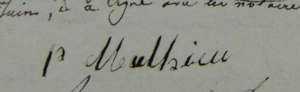 Juin, & a signé avec un notaire
P Mathieu